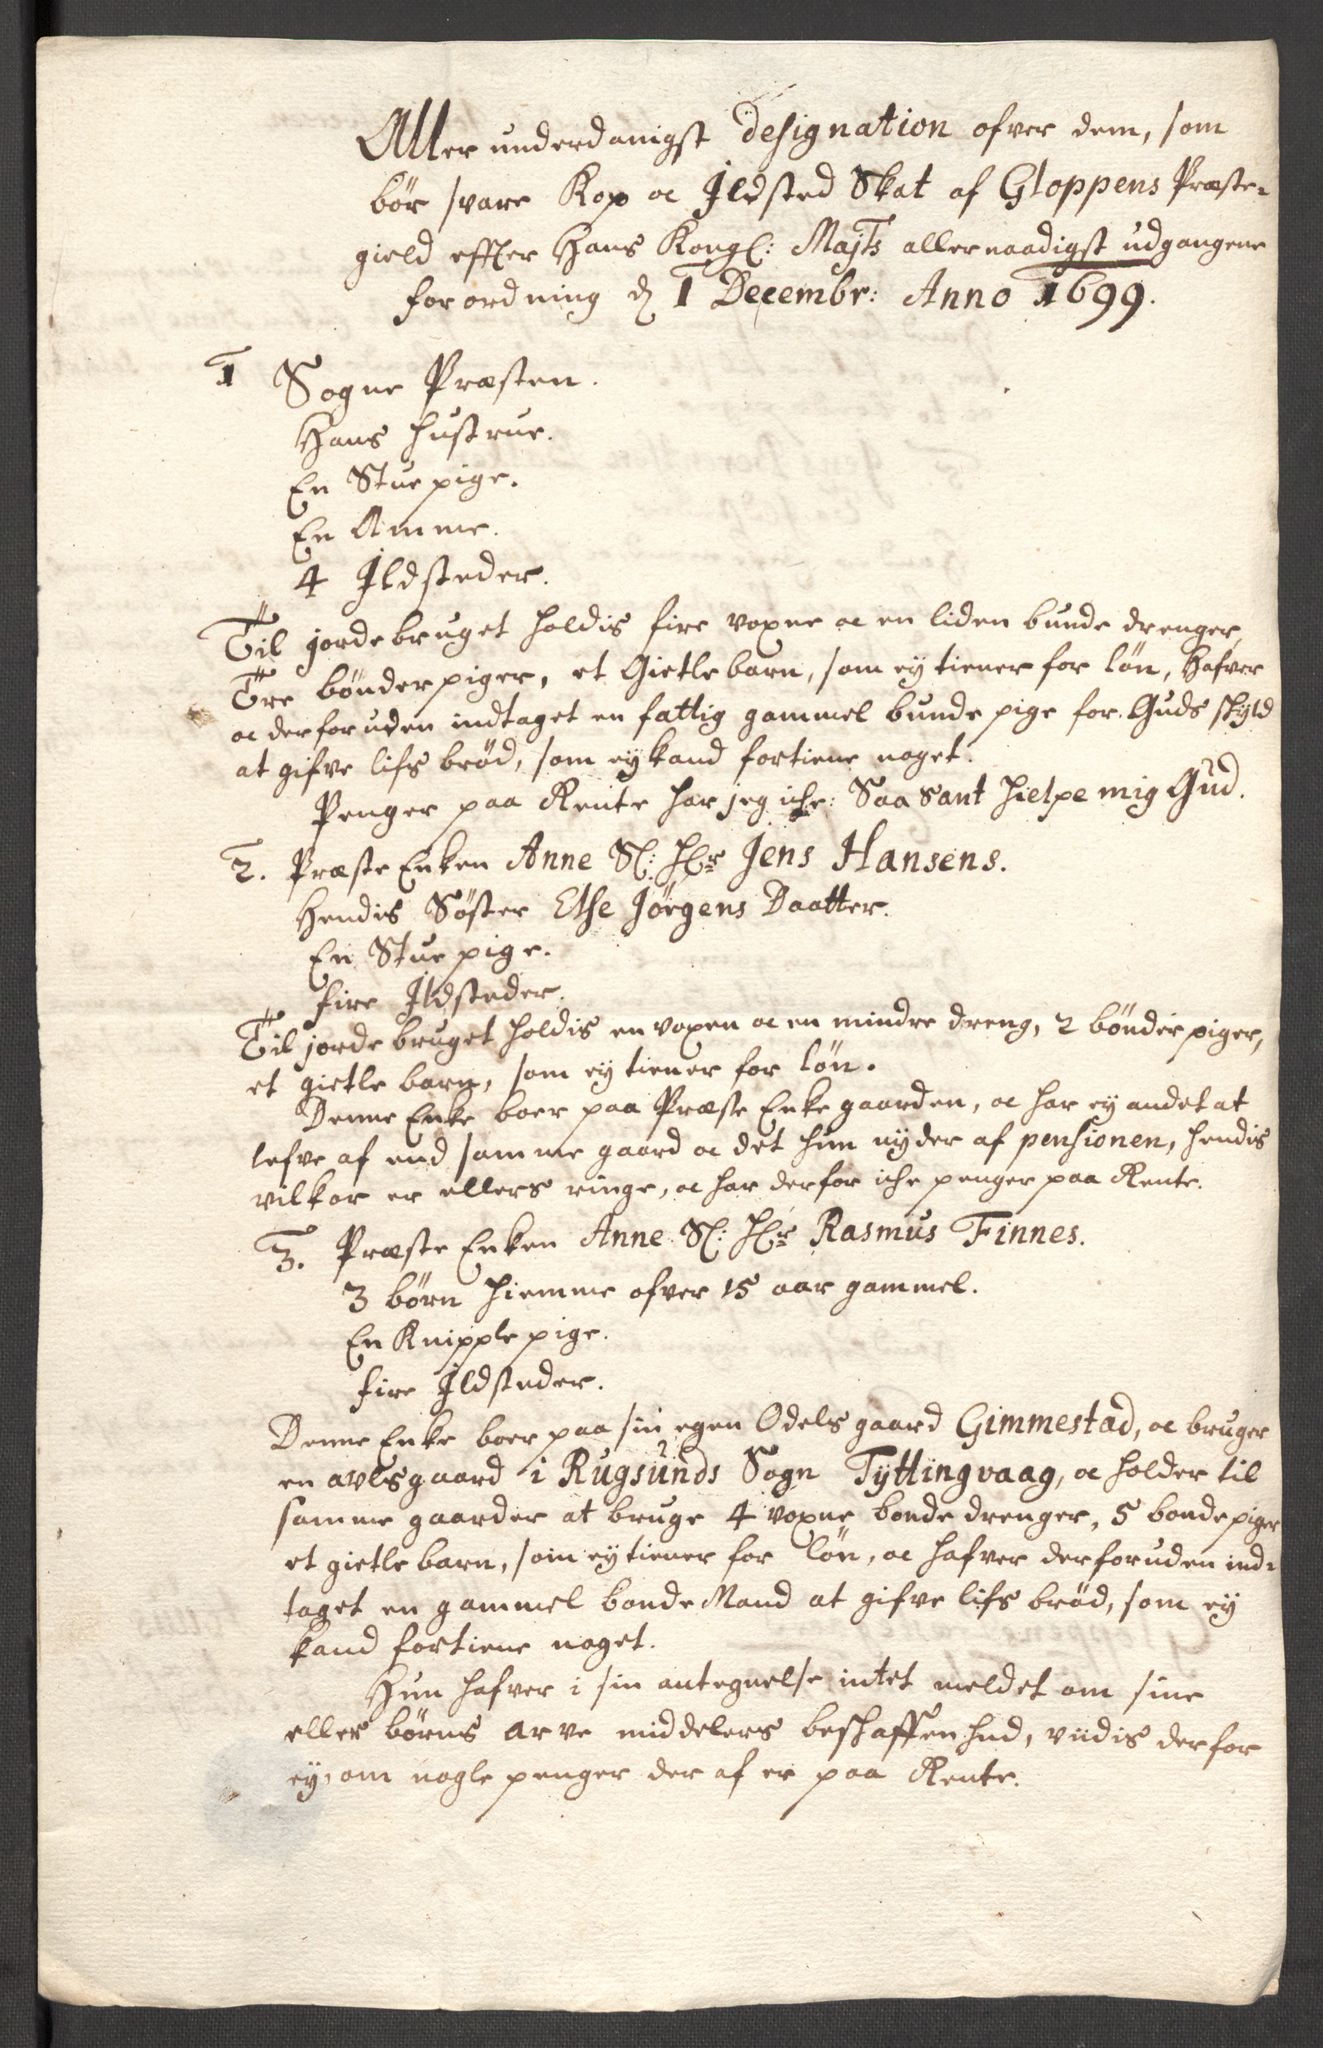 Aller underdanigst Designation ofver dem, som
bör svare Kop oc Ildsted Skat af Gloppens Præste-
gield effter Hans Kongl: Majts allernaadigst udgangene
forordning d 1 Decembr: Anno 1699.
1 Sogne Præsten.
Hans Hustrue.
En Stue pige.
En Amme.
4 Ildsteder.
Til jordebruget holdis fire voxne oc en liden bunde drenger,
Tre bönder piger, et Gietle barn, som ey tiener for lön, Hafver
oc der foruden indtaget en fattig gammel bunde pige for Guds skyld
at gifve lifs bröd, som ey kand fortiene noget.
Penger paa Rente har jeg iche: Saa Sant hielpe mig Gud.
2. Præste Enken Anne Sl: Hr Jens Hansens.
Hendis Söster Else Jörgens Daatter.
En Stue pige.
fire Ildsteder.
Til jorde bruget holdis en voxen oc en mindre dreng, 2 bönder piger,
et gietle barn, som ey tiener for lön.
Denne Enke boer paa Præste Enke gaarden, oc har ey andet at
lefve af end samme gaard oc det hun nyder af pensionen, hendis
vilkor er ellers ringe, oc har derfor iche penger paa Rente.
3. Præste Enken Anne Sl: Hr Rasmus Finnes.
3 börn hiemme ofver 15 aar gammel.
En Knipple pige.
fire Ildsteder.
Denne Enke boer paa sin egen Odels gaard Gimmestad, oc bruger
en avlsgaard i Rugsunds Sogn Tyttingvaag, oc holder til
samme gaarder at bruge 4 voxne bonde drenger, 5 bonde piger
et gietle barn, som ey tiener for lön, oc hafver derforuden ind-
taget en gammel bonde Mand at gifve lifs bröd, som ey
kand fortiene noget.
Hun hafver i sin antegnelse intet meldet om sine
eller börns arve middelers beskaffenhed, viidis derfor
ey, om nogle penger der af er paa Rente.